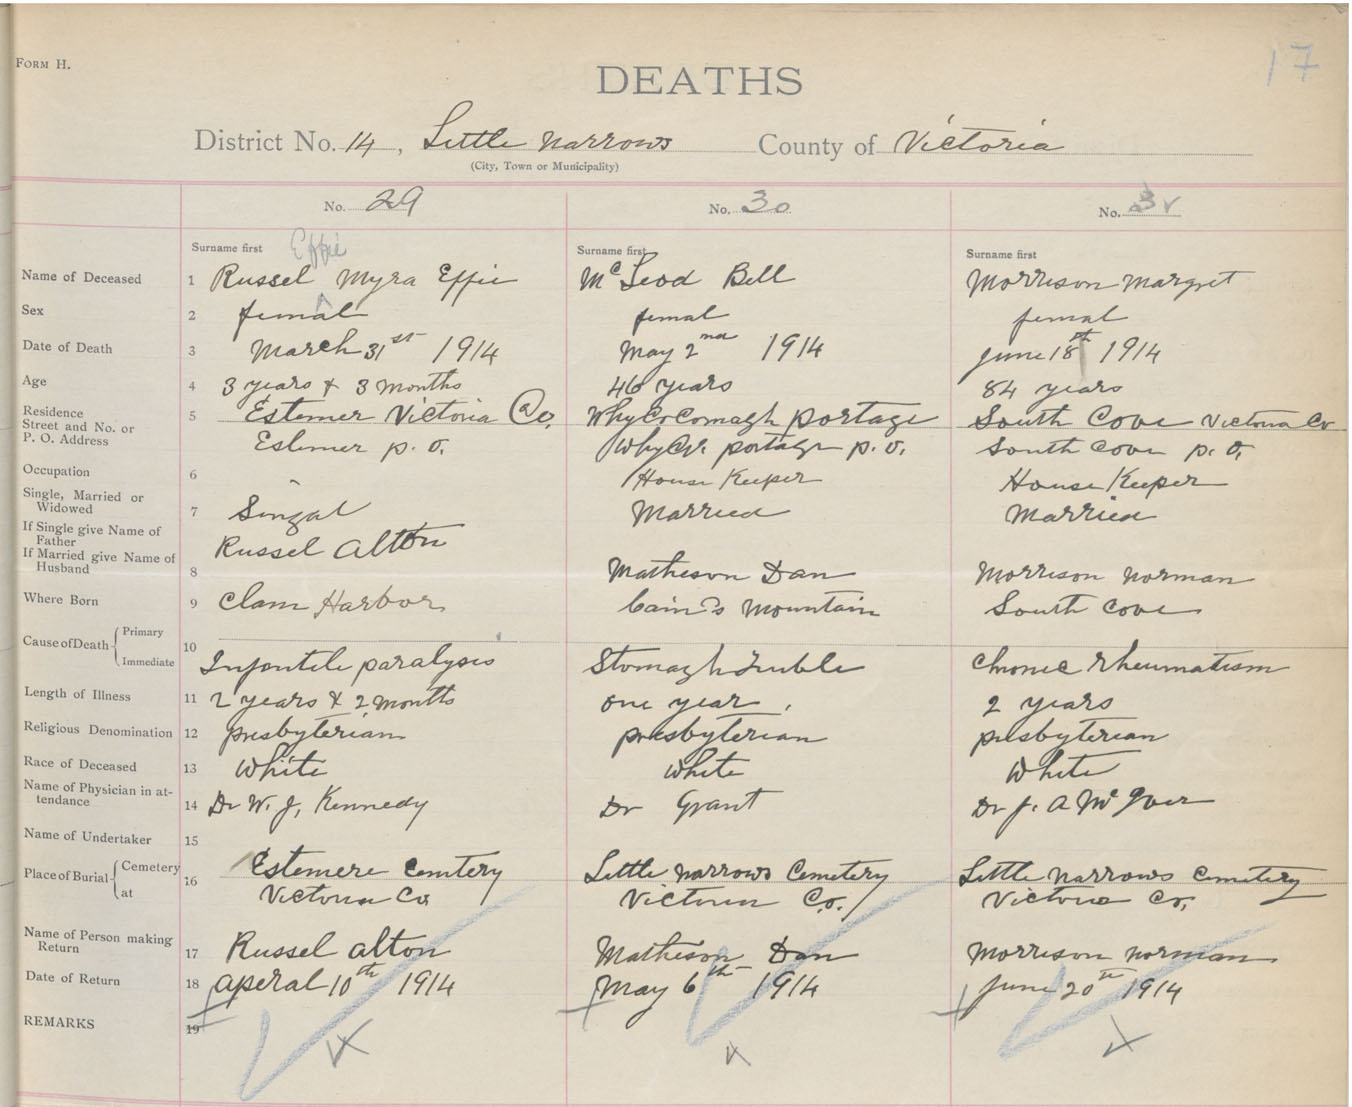 17
FORM H.
DEATHS
District No. 14, Little Narrows County of Victoria
(City, Town or Municipality)
No. 29 No. 30 No.
Surname first Effie Surname first Surname first
Name of Deceased 1 Russel Myra Effie McLeod Bell Morrison Margret
Sex 2 femal femal femal
Date of Death 3 March 31st 1914 May 2nd 1914 June 18th 1914
Age 4 3 years & 3 months 46 years 84 years
Residence 5 Estemer Victoria Co. WhyCoComagh portage South Cove Victoria Co
Street and No. or
P. O. Address Estimer p. o. portage p. o. South Cove p. o.
Occupation 6 House Keeper House Keeper
Single, Married or Widowed 7 Singal Married Married
If Single give Name of Father Russel Alton
If Married give Name of Husband 8 Matheson Dan Morrison Norman
Where Born 9 Clam Harbor Cain's Mountain South Cove
Cause of Death Primary 10
Immediate Infantile paralysis Stomagh Truble Chronic Rheumatism
Length of Illness 11 2 years & 2 months one year 2 years
Religious Denomination 12 presbyterian presbyterian presbyterian
Race of Deceased 13 White White White
Name of Physician in attendance 14 Dr W. J, Kennedy Dr Grant Dr J. A
Name of Undertaker 15
Place of Burial Cemetery 16 Estemere Cemtery Little Narrows Cemetery Little Narrows Cemetery
at Victoria Co Victoria Co. Victoria Co.
Name of Person making Return 17 Russel Alton Matheson Dan Morrison Norman
Date of Return 18 Aperal 10th 1914 May 6th 1914 June 20th 1914
REMARKS 19